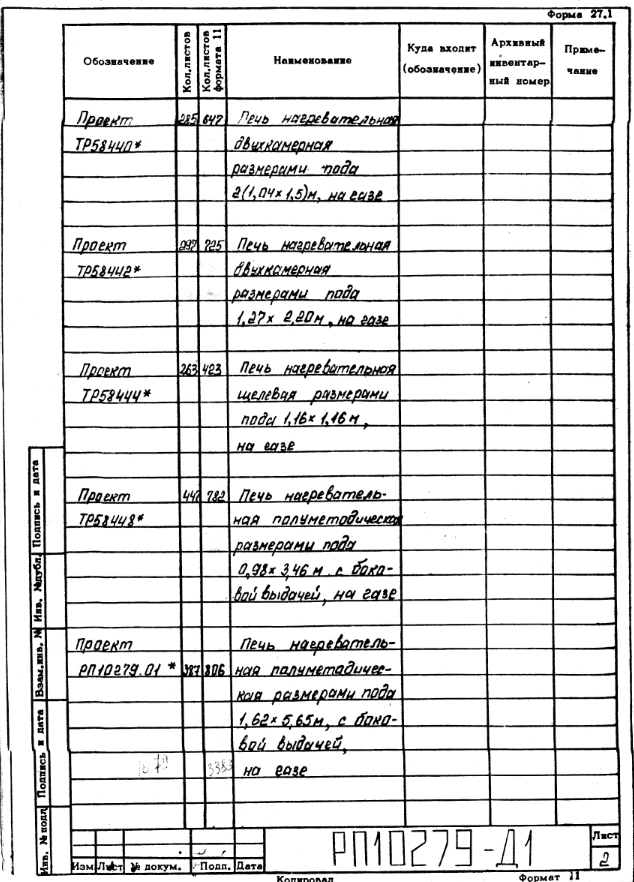 Форма 27.1
Обозначение
Кол.листов
Кол.листов формата 11
Наименование
Куда входит (обозначение)
Архивный инвентарный номер
Примечание
Проект 285 647 Печь нагревательная
ТР58440* двухкамерная
размерами пода
2(1,04×1,5)м, на газе
Проект 297 725 Печь нагревательная
ТР58442* двухкамерная
размерами пода
1,27× 2,20м, на газе
Проект 263 423 Печь нагревательная
ТР58444* щелевая размерами
пода 1,16×1,16 м,
на газе
Проект 447 782 Печь нагреватель-
ТР58448* ная полуметодическая
размерами пода
0,98× 3,46 м с боко-
вой выдачей, на газе
Проект Печь нагреватель-
РП10279.01 * 387 806 ная полуметодичес-
кая размерами пода
1,62×5,65м, с боко-
вой выдачей,
1679 3383 на газе
Инв. № подл
Подпись и дата
Взам.инв. №
Инв. №дубл.
Подпись и дата
Изм Лист № докум. Подп. Дата
РП10279-Д1
Лист
2
Копировал Формат 11